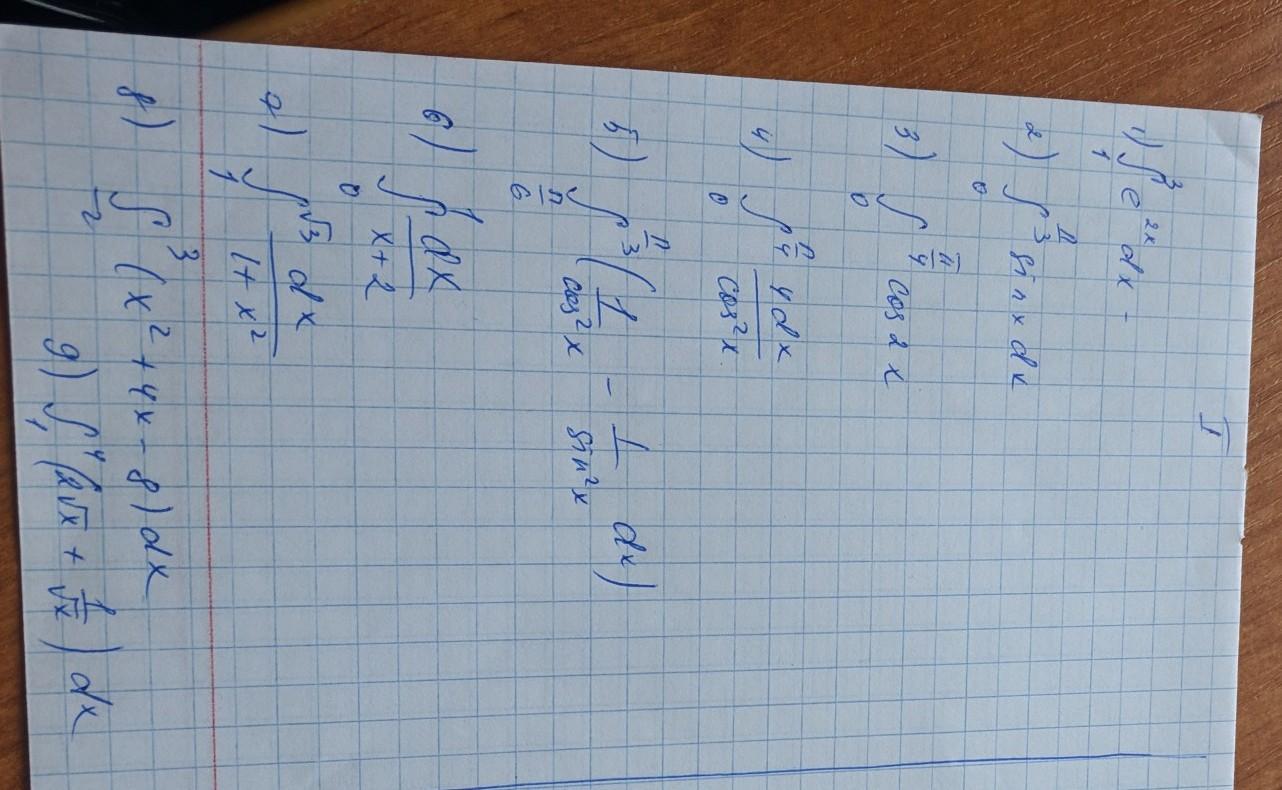 I
1) ∫₁³ e^{2x} dx -
2) ∫₀^{π/3} sin x dx
3) ∫₀^{π/4} cos 2x
4) ∫₀^{π/4} 4dx/cos²x
5) ∫_{π/6}^{π/3} (1/cos²x - 1/sin²x dx)
6) ∫₀¹ dx/x+2
7) ∫₁^{√3} dx/1+x²
8) ∫₋₂³ (x² + 4x - 8) dx
9) ∫₁⁴ (2√x + 1/√x) dx